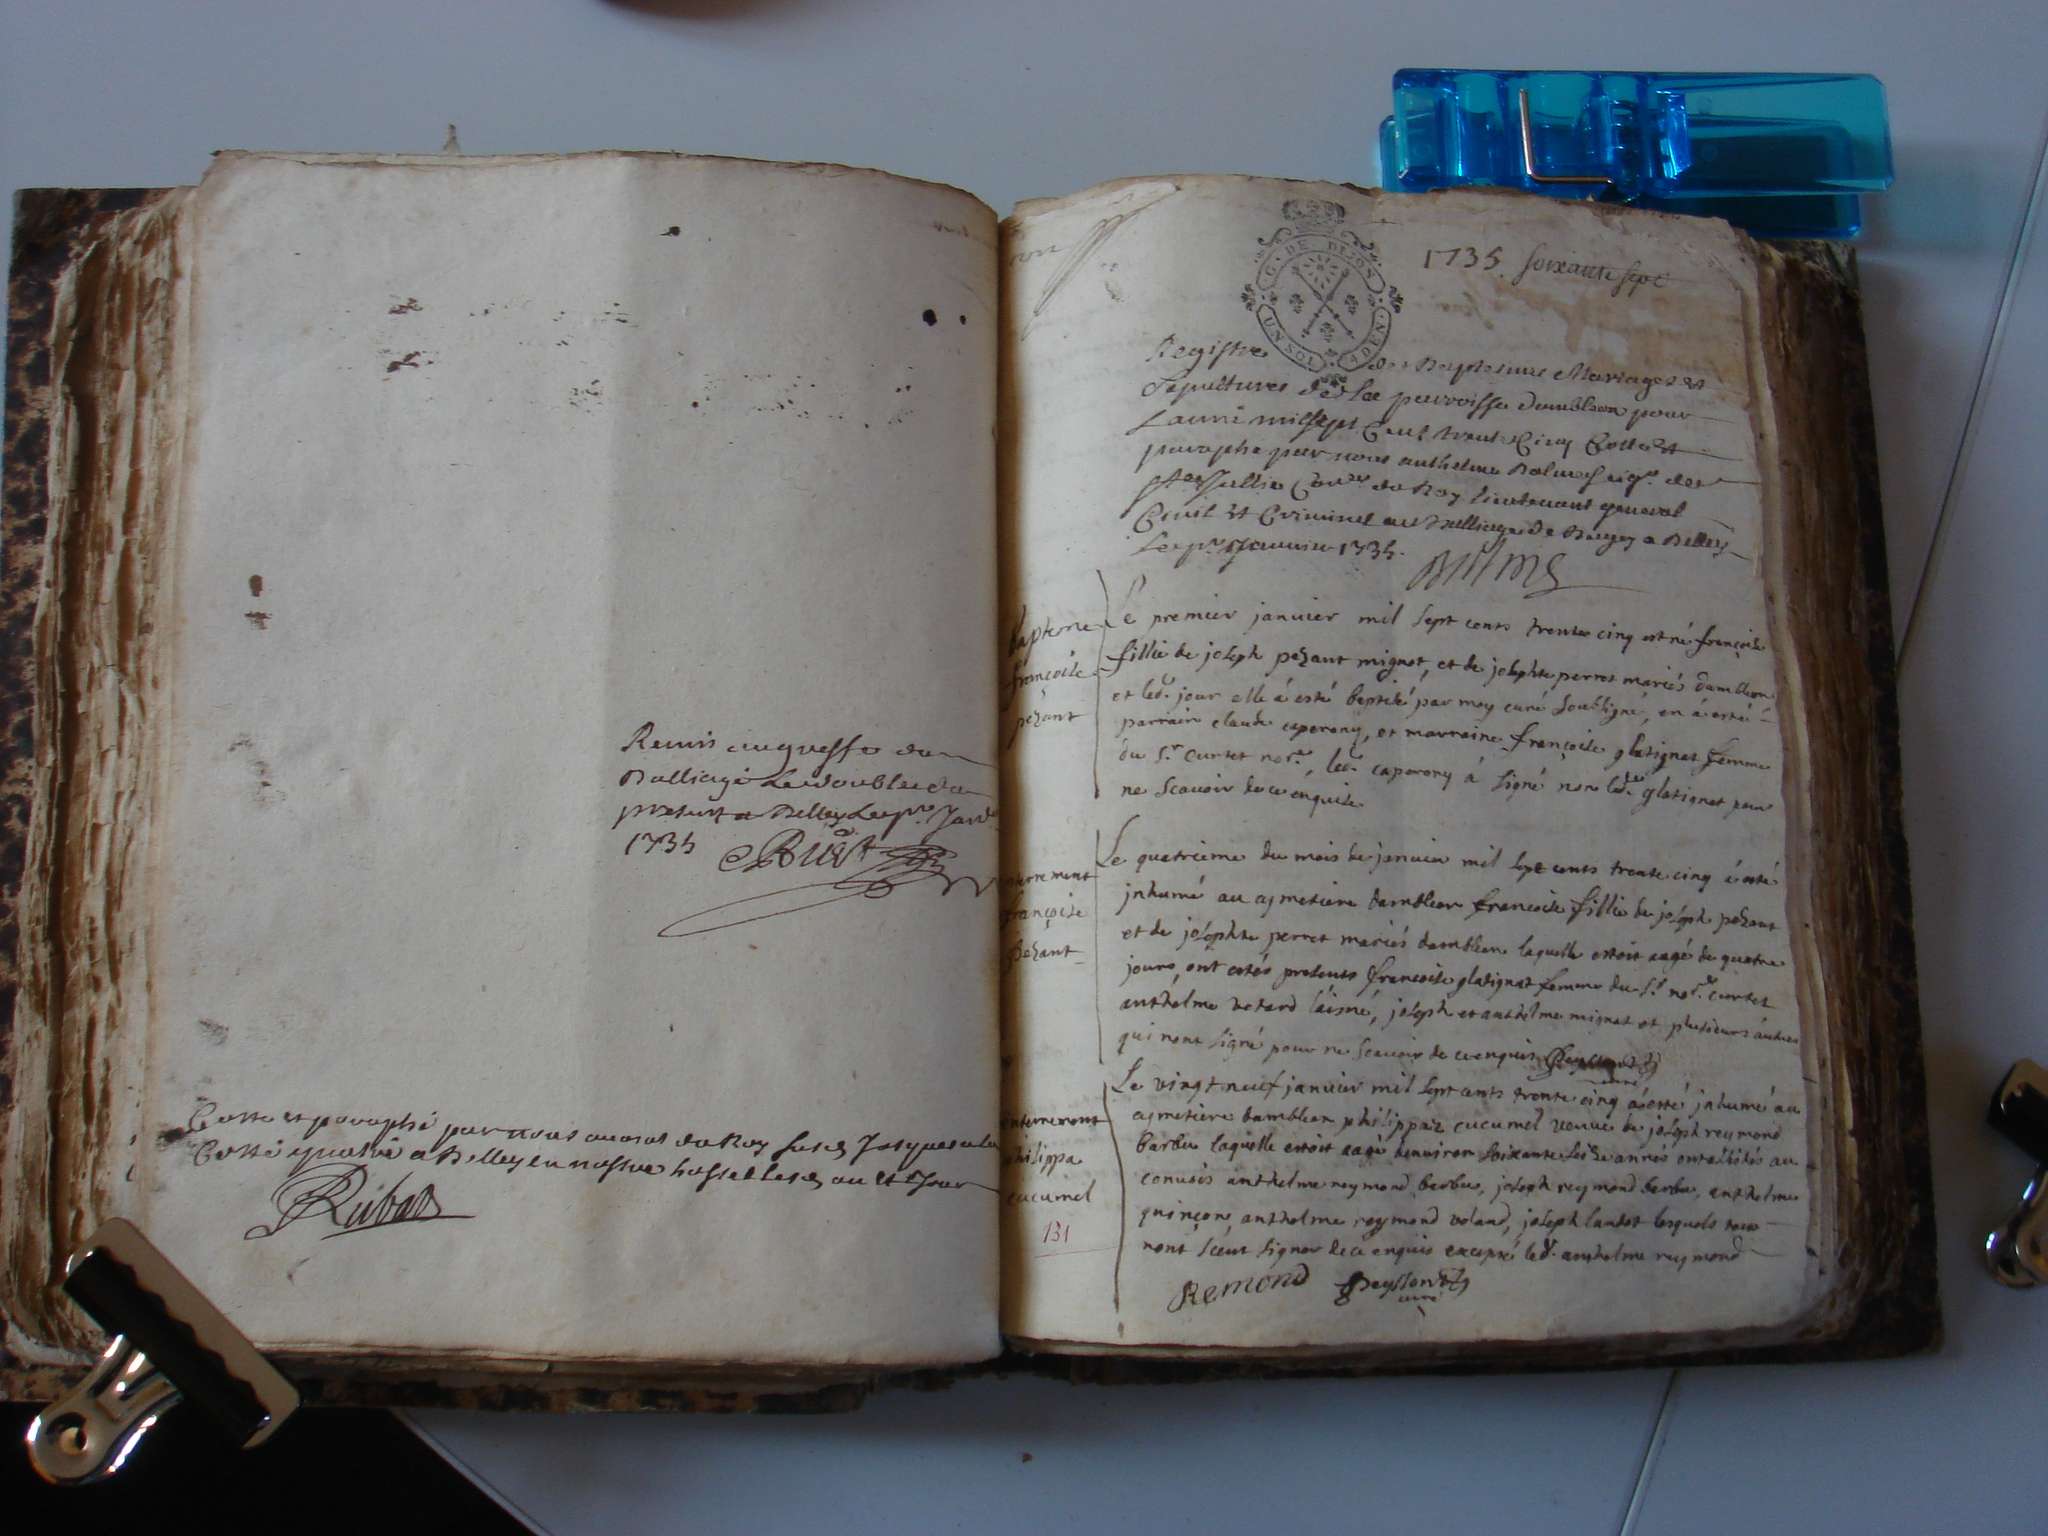 Remis au greffe du
Balliage le double du
present a Belley le pr. Janv.
1735
Cotté et paraphé par nous avocat du Roy
Cotté quatre a Belley en nostre hostel les an et Jour
Rubat
G. DE DIJON
UN SOL
4 DEN.
1735. soixante sept
Registre des Baptesmes Mariages et
Sepultures de la parroisse dambleon pour
Lanné mil sept Cent trente Cinq Cotté et
paraphé par nous anthelme Balme seigr. des
Stes Jullie Conser du Roy lieutenant general
Civil et Criminel au Balliage de Bugey a Belley
Le pr. Janvier 1735.
Balme
bapteme
françoise
pezant
Le premier janvier mil sept cents trente cinq est né françoise
fillie de joseph pezant mignot, et de josephte perret mariés dambleon
et led. jour elle á esté baptisé par moy curé soubsigné, en á esté
parrain claude caperony, et marraine françoise glatignat femme
du sr. curtet nore., led. caperony á signé non lade glatignat pour
ne scavoir de ce enquise
enterrement
françoise
pezant
Le quatrieme du mois de janvier mil sept cents trente cinq á esté
jnhumé au cymetiere dambleon francoise fillie de joseph pezant
et de josephte perret mariés dambleon laquelle estoit aagé de quatre
jours, ont estés presents francoise glatignat femme du sr. nore. curtet
anthelme vetard l'aisné, joseph et anthelme mignot et plusieurs autres
qui nont signé pour ne scavoir de ce enquis
curé
enterrement
philippa
cucumel
131
Le vingt neuf janvier mil sept cents trente cinq á esté jnhumé au
cymetiere dambleon philippaz cucumel veuve de joseph reymond
barbu laquelle estoit aagé denviron soixante seize annés ont assistés au
convois anthelme reymond barbu, joseph reymond barbu, anthelme
quinçon, anthelme reymond voland, joseph lantet lesquels tous
nont sceut signer de ce enquis excepté led. anthelme reymond
Remond
curé